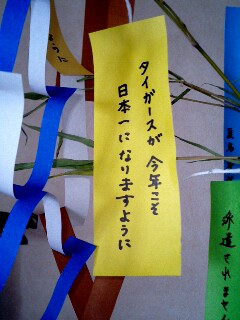 タイガースが 今年こそ
日本一になりますように
派遣されません